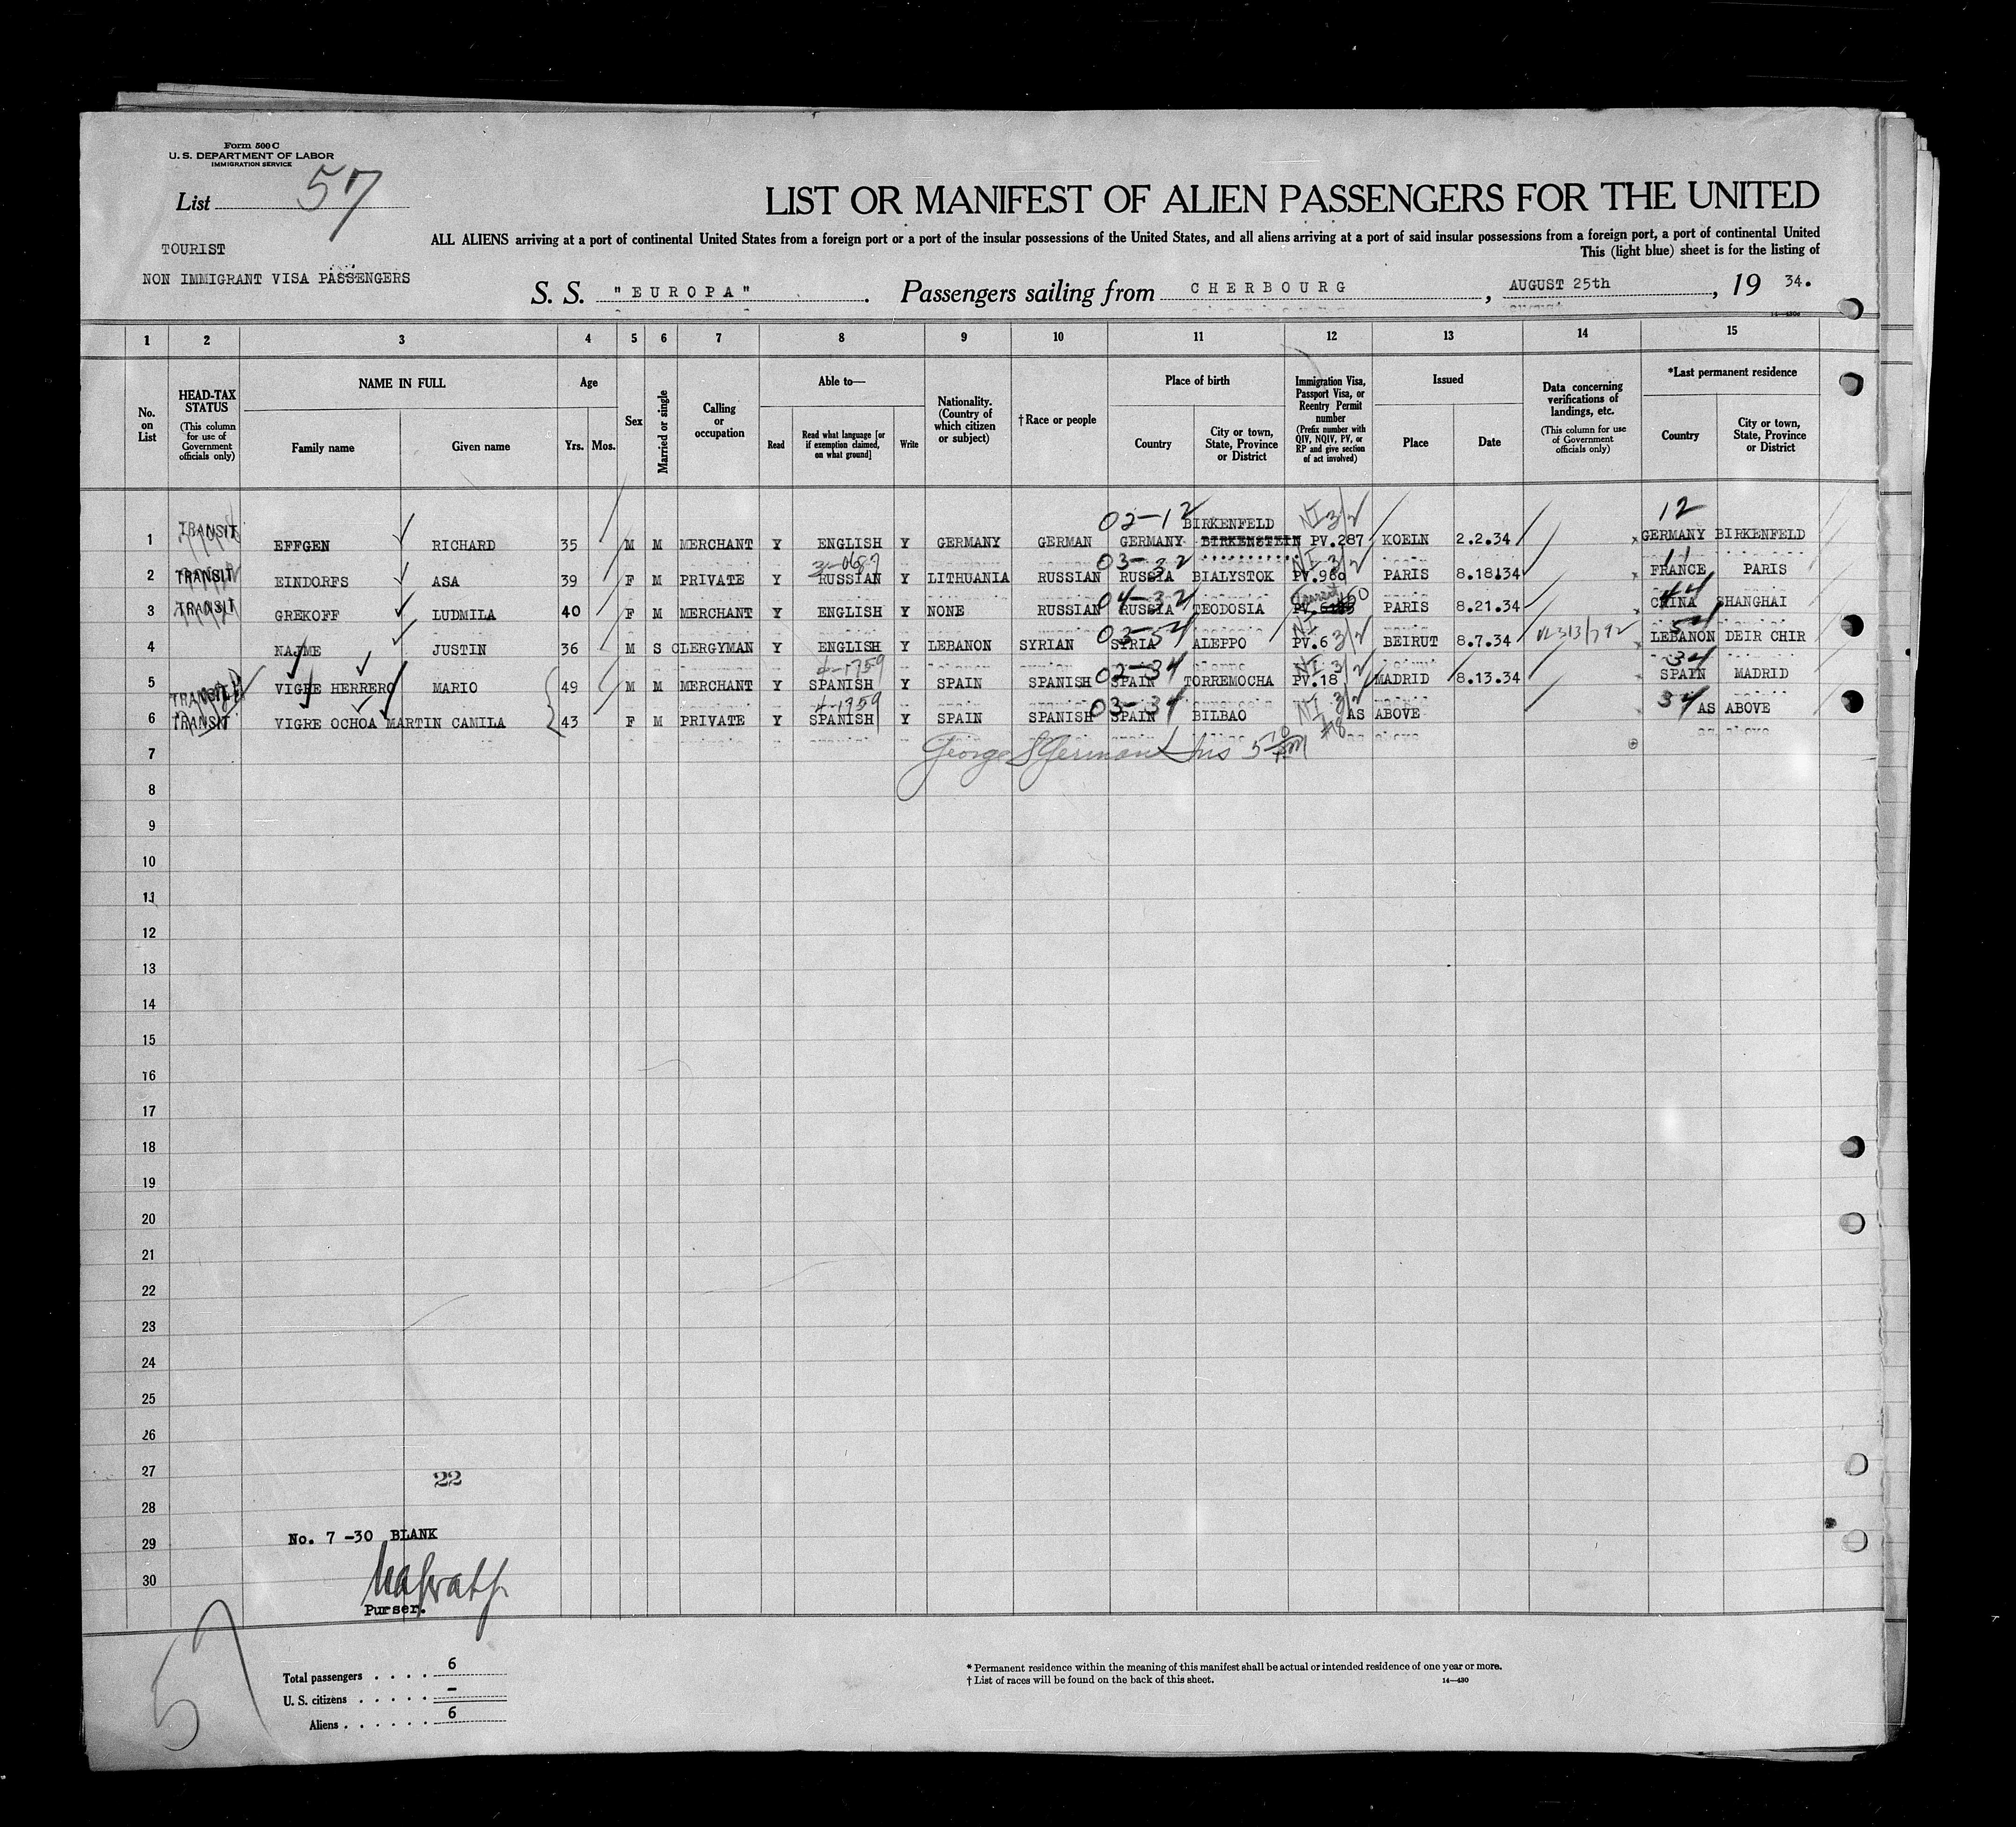 Form 500 C
U. S. DEPARTMENT OF LABOR
IMMIGRATION SERVICE
List 57
LIST OR MANIFEST OF ALIEN PASSENGERS FOR THE UNITED
ALL ALIENS arriving at a port of continental United States from a foreign port or a port of the insular possessions of the United States, and all aliens arriving at a port of said insular possessions from a foreign port, a port of continental United
This (light blue) sheet is for the listing of
TOURIST
NON IMMIGRANT VISA PASSENGERS
S. S. "EUROPA". Passengers sailing from CHERBOURG, AUGUST 25th, 19 34.
1 2 3 4 5 6 7 8 9 10 11 12 13 14 15
No. on List
HEAD-TAX STATUS
(This column for use of Government officials only)
NAME IN FULL
Family name
Given name
Age
Yrs. Mos.
Sex
Married or single
Calling or occupation
Able to—
Read
Read what language [or if exemption claimed, on what ground]
Write
Nationality. (Country of which citizen or subject)
†Race or people
Place of birth
Country
City or town, State, Province or District
Immigration Visa, Passport Visa, or Reentry Permit number
(Prefix number with QIV, NQIV, PV, or RP and give section of act involved)
Issued
Place
Date
Data concerning verifications of landings, etc.
(This column for use of Government officials only)
*Last permanent residence
Country
City or town, State, Province or District
02-12 BIRKENFELD NI 3/2 12
1 TRANSIT EFFGEN RICHARD 35 M M MERCHANT Y ENGLISH Y GERMANY GERMAN GERMANY BIRKENSTEIN PV.287 KOELN 2.2.34 GERMANY BIRKENFELD
03-32 NI 3/2
2 TRANSIT EINDORFS ASA 39 F M PRIVATE Y RUSSIAN Y LITHUANIA RUSSIAN RUSSIA BIALYSTOK PV.980 PARIS 8.18.34 FRANCE PARIS
04-32 Transit 44
3 TRANSIT GREKOFF LUDMILA 40 F M MERCHANT Y ENGLISH Y NONE RUSSIAN RUSSIA TEODOSIA PARIS 8.21.34 CHINA SHANGHAI
03-54 NI 3/2 54
4 NAJME JUSTIN 36 M S CLERGYMAN Y ENGLISH Y LEBANON SYRIAN SYRIA ALEPPO PV.6 BEIRUT 8.7.34 LEBANON DEIR CHIR
4-1759 02-34 NI 3/2 34
5 TRANSIT VIGRE HERRERO MARIO 49 M M MERCHANT Y SPANISH Y SPAIN SPANISH SPAIN TORREMOCHA PV.18 MADRID 8.13.34 SPAIN MADRID
4-1759 03-34 NI 3/2 34
6 TRANSIT VIGRE OCHOA MARTIN CAMILA 43 F M PRIVATE Y SPANISH Y SPAIN SPANISH SPAIN BILBAO AS ABOVE AS ABOVE
#18
7 George S German Ins
8
9
10
11
12
13
14
15
16
17
18
19
20
21
22
23
24
25
26
27 22
28
29 No. 7 -30 BLANK
30
Purser.
57
Total passengers . . . . 6
U. S. citizens . . . . . –
Aliens . . . . . . 6
* Permanent residence within the meaning of this manifest shall be actual or intended residence of one year or more.
† List of races will be found on the back of this sheet. 14—430